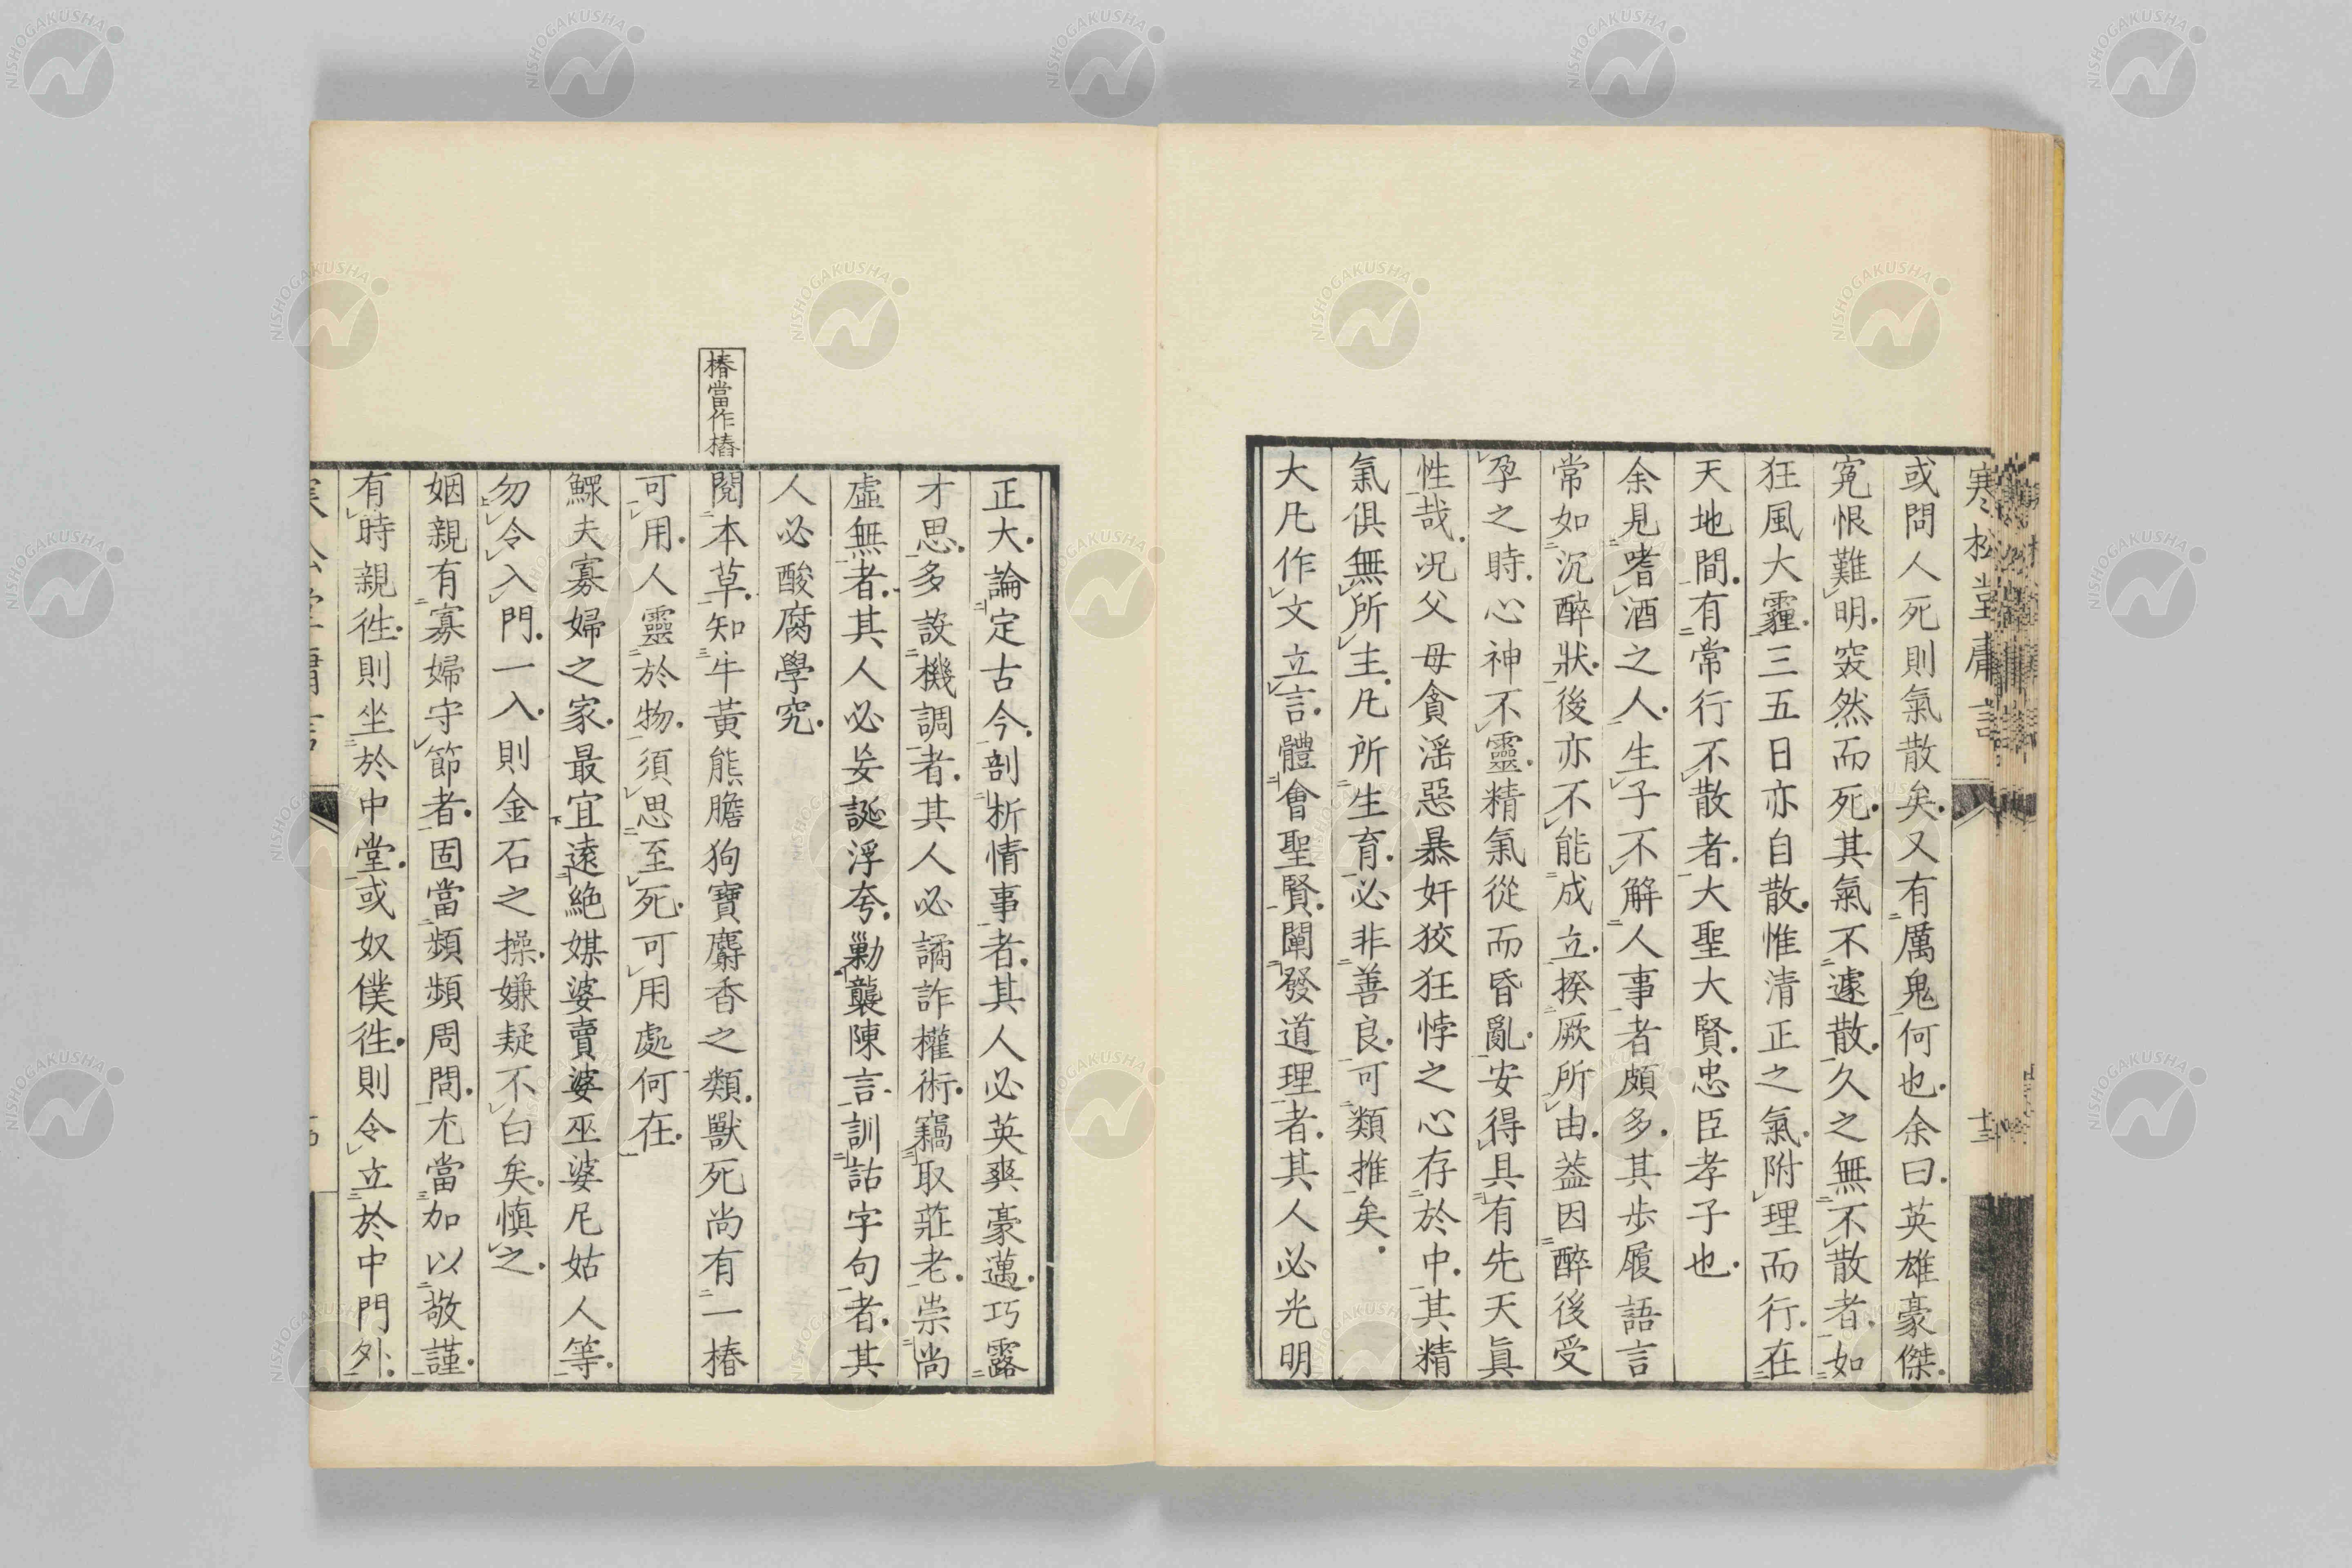 寒松堂庸言
十三
或問人死則氣散矣又有厲鬼何也余曰英雄豪傑
冤恨難明突然而死其氣不遽散久之無不散者如
狂風大霾三五日亦自散惟清正之氣附理而行在
天地間有常行不散者大聖大賢忠臣孝子也
余見嗜酒之人生子不解人事者頗多其步履語言
常如沉醉狀後亦不能成立揆厥所由葢因醉後受
孕之時心神不靈精氣從而昏亂安得具有先天眞
性哉況父母貪滛惡暴奸狡狂悖之心存於中其精
氣俱無所主凡所生育必非善良可類推矣
大凡作文立言體會聖賢闡發道理者其人必光明
正大論定古今剖析情事者其人必英爽豪邁巧露
才思多設機調者其人必譎詐權術竊取莊老崇尚
虛無者其人必妄誕浮夸勦襲陳言訓詁字句者其
人必酸腐學究
椿當作樁
閱本草知牛黃熊膽狗寶麝香之類獸死尚有一椿
可用人靈於物須思至死可用處何在
鰥夫寡婦之家最宜遠絕媒婆賣婆巫婆尼姑人等
勿令入門一入則金石之操嫌疑不白矣慎之
姻親有寡婦守節者固當頻頻周問尤當加以敬謹
有時親徃則坐於中堂或奴僕徃則令立於中門外
NISHOGAKUSHA